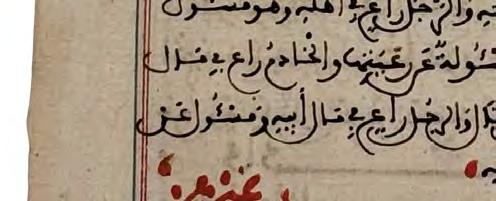 ـيه والرجل راع في أهله وهو مسئول
ـسئولة عن رعيتها والخادم راع في مال
ـال والرجل راع في مال أبيه ومسئول عن
ـيه